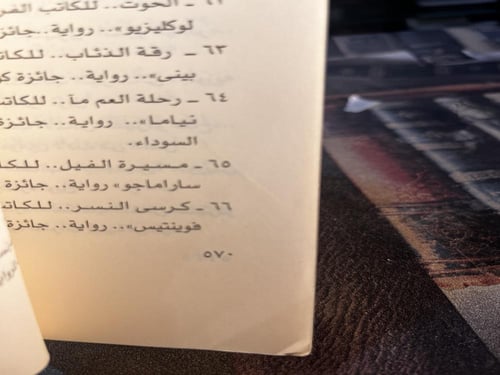 ٦٢ ـ الحوت.. للكاتب
لوكليزيو».. رواية.. جائز
٦٣ ـ رقة الذئاب.. للك
بينى».. رواية.. جائزة ك
٦٤ ـ رحلة العم مآ.. للكات
نياما».. رواية.. جائزة
السوداء.
٦٥ ـ مسيرة الفيل.. للكا
ساراماجو» رواية.. جائزة
٦٦ ـ كرسى النسر.. للكات
فوينتيس».. رواية.. جائزة
٥٧٠